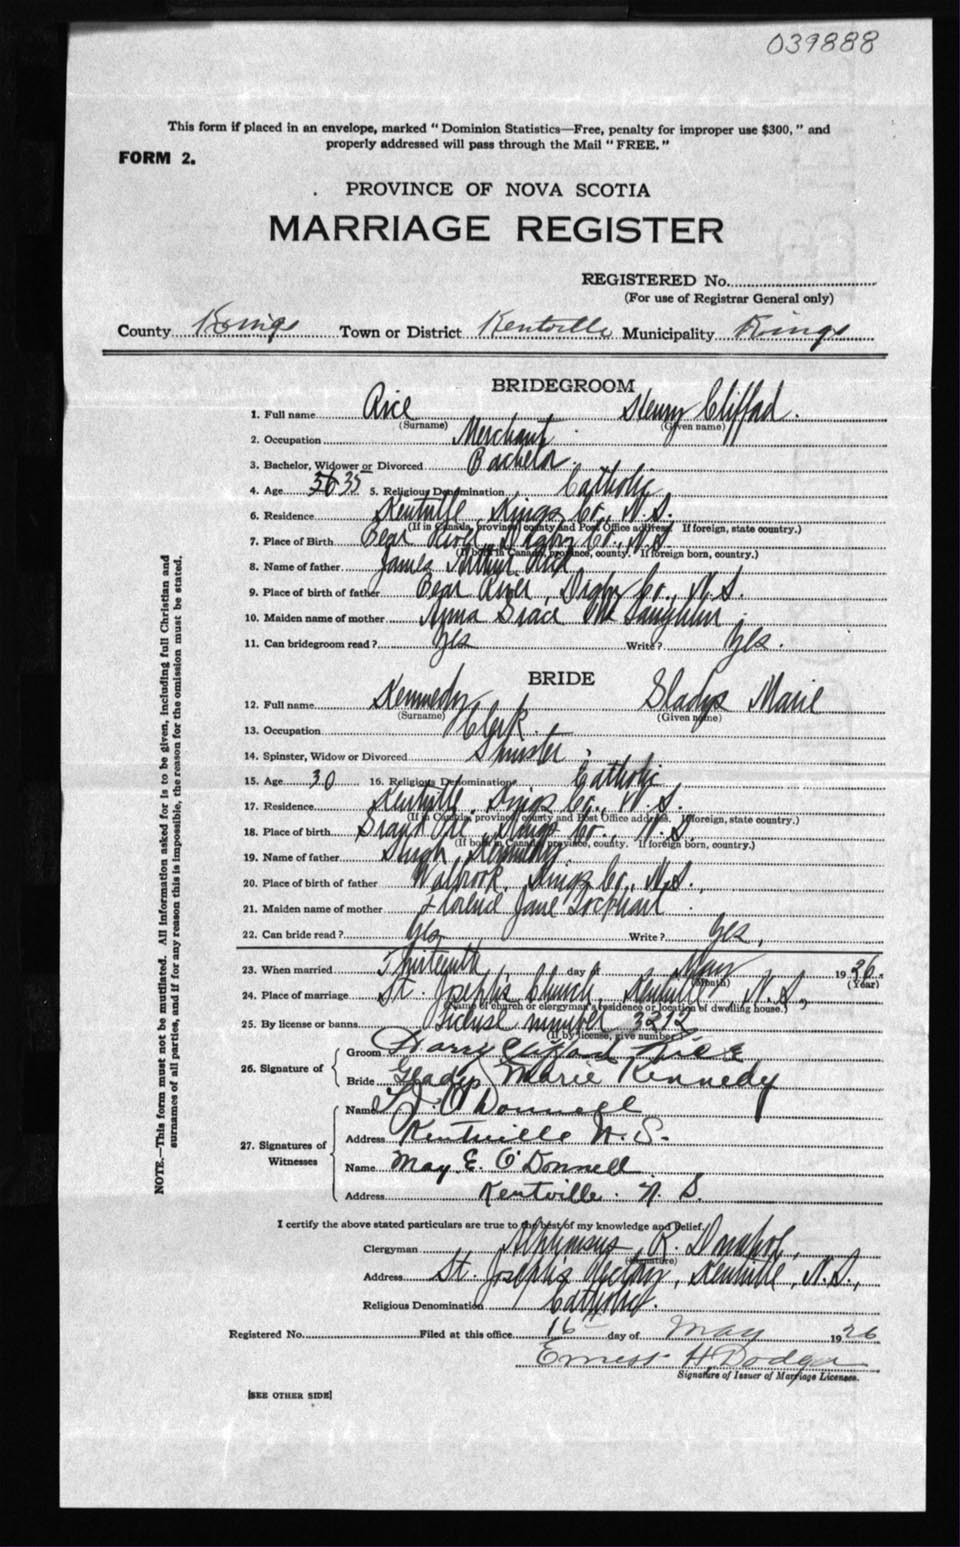 039888
This form if placed in an envelope, marked "Dominion Statistics—Free, penalty for improper use $300," and
properly addressed will pass through the Mail "FREE."
FORM 2.
PROVINCE OF NOVA SCOTIA
MARRIAGE REGISTER
REGISTERED No.
(For use of Registrar General only)
County Kings Town or District Kentville Municipality Kings
BRIDEGROOM
1. Full name Rice Henry Cliffad.
(Surname) (Given name)
2. Occupation Merchant
3. Bachelor, Widower or Divorced Bachelor.
4. Age 36 35 5. Religious Denomination Catholic
6. Residence Kentville Kings Co., N.S.
(If in Canada, province, county and Post Office address. If foreign, state country.)
7. Place of Birth Bear River, Digby Co., N.S.
(If born in Canada, province, county. If foreign born, country.)
8. Name of father James Arthur Rice
9. Place of birth of father Bear River, Digby Co., N.S.
10. Maiden name of mother Anna Grace Mc Laughlin
11. Can bridegroom read? Yes Write? Yes.
BRIDE
12. Full name Kennedy Gladys Marie
(Surname) (Given name)
13. Occupation Clerk
14. Spinster, Widow or Divorced Spinster.
15. Age 30 16. Religious Denominations Catholic
17. Residence Kentville, Kings Co., N.S.
(If in Canada, province, county and Post Office address. If foreign, state country.)
18. Place of birth Grand Pré, Kings Co., N.S.
(If born in Canada, province, county. If foreign born, country.)
19. Name of father Hugh Kennedy.
20. Place of birth of father Walbrook, Kings Co., N.S.,
21. Maiden name of mother Florence Jane Lockhart
22. Can bride read? Yes Write? Yes,
23. When married Thirteenth day of May 1926.
(Month) (Year)
24. Place of marriage St. Joseph's Church, Kentville N.S.,
(Name of church or clergyman's residence or location of dwelling house.)
25. By license or banns License number 3212
(If by license, give number)
26. Signature of
Groom Harry Clifford Rice
Bride Gladys Marie Kennedy
27. Signatures of Witnesses
Name J O'Donnell
Address Kentville N.S.
Name May E. O'Donnell
Address Kentville. N.S.
I certify the above stated particulars are true to the best of my knowledge and belief.
Clergyman Alphonsus R. Donahoe,
(Signature)
Address St. Joseph's Rectory, Kentville, N.S.,
Religious Denomination Catholic.
Registered No. Filed at this office 16th day of May 1926
Ernest H. Dodge
Signature of Issuer of Marriage Licenses.
[SEE OTHER SIDE]
NOTE.—This form must not be mutilated. All information asked for is to be given, including full Christian and
surnames of all parties, and if for any reason this is impossible, the reason for the omission must be stated.